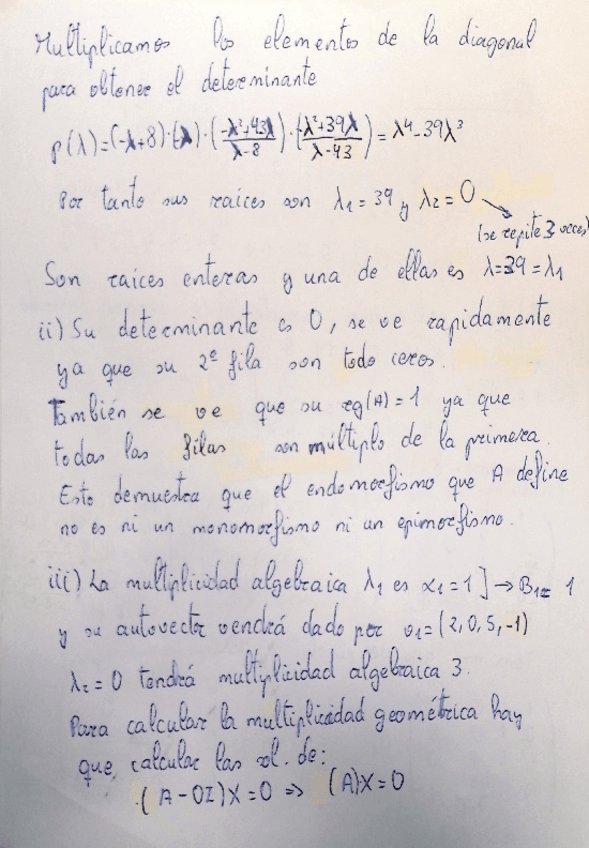 Multiplicamos los elementos de la diagonal
para obtener el determinante
p(λ)=(-λ+8)·(-λ)·(-λ²+43λ/λ-8)·(-λ²+39λ/λ-43)=λ⁴-39λ³
Por tanto sus raíces son λ₁=39 y λ₂=0
(se repite 3 veces)
Son raíces enteras y una de ellas es λ=39=λ₁
ii) Su determinante es 0, se ve rapidamente
ya que su 2ª fila son todo ceros.
También se ve que su rg(A)=1 ya que
todas las filas son múltiplo de la primera.
Esto demuestra que el endomorfismo que A define
no es ni un monomorfismo ni un epimorfismo.
iii) La multiplicidad algebraica λ₁ es α₁=1] → B₁= 1
y su autovector vendrá dado por v₁=(2,0,5,-1)
λ₂=0 tendrá multiplicidad algebraica 3.
Para calcular la multiplicidad geométrica hay
que calcular las sol. de:
(A-0I)X=0 => (A)X=0